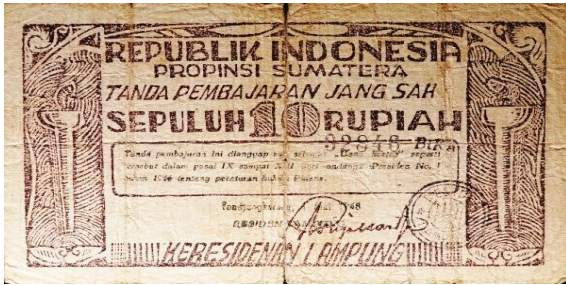 REPUBLIK INDONESIA
PROPINSI SUMATERA
TANDA PEMBAJARAN JANG SAH
SEPULUH 10 RUPIAH
32848 BLKA
Tanda pembajaran ini dianggap sah sebagai "Uang seperti
tersebut dalam pasal IX sampai XIII Presiden No. 1
tahun 1946 tentang peraturan hukum Pidana.
Tandjungkarang, Mei 1948
RESIDEN
KERESIDENAN LAMPUNG